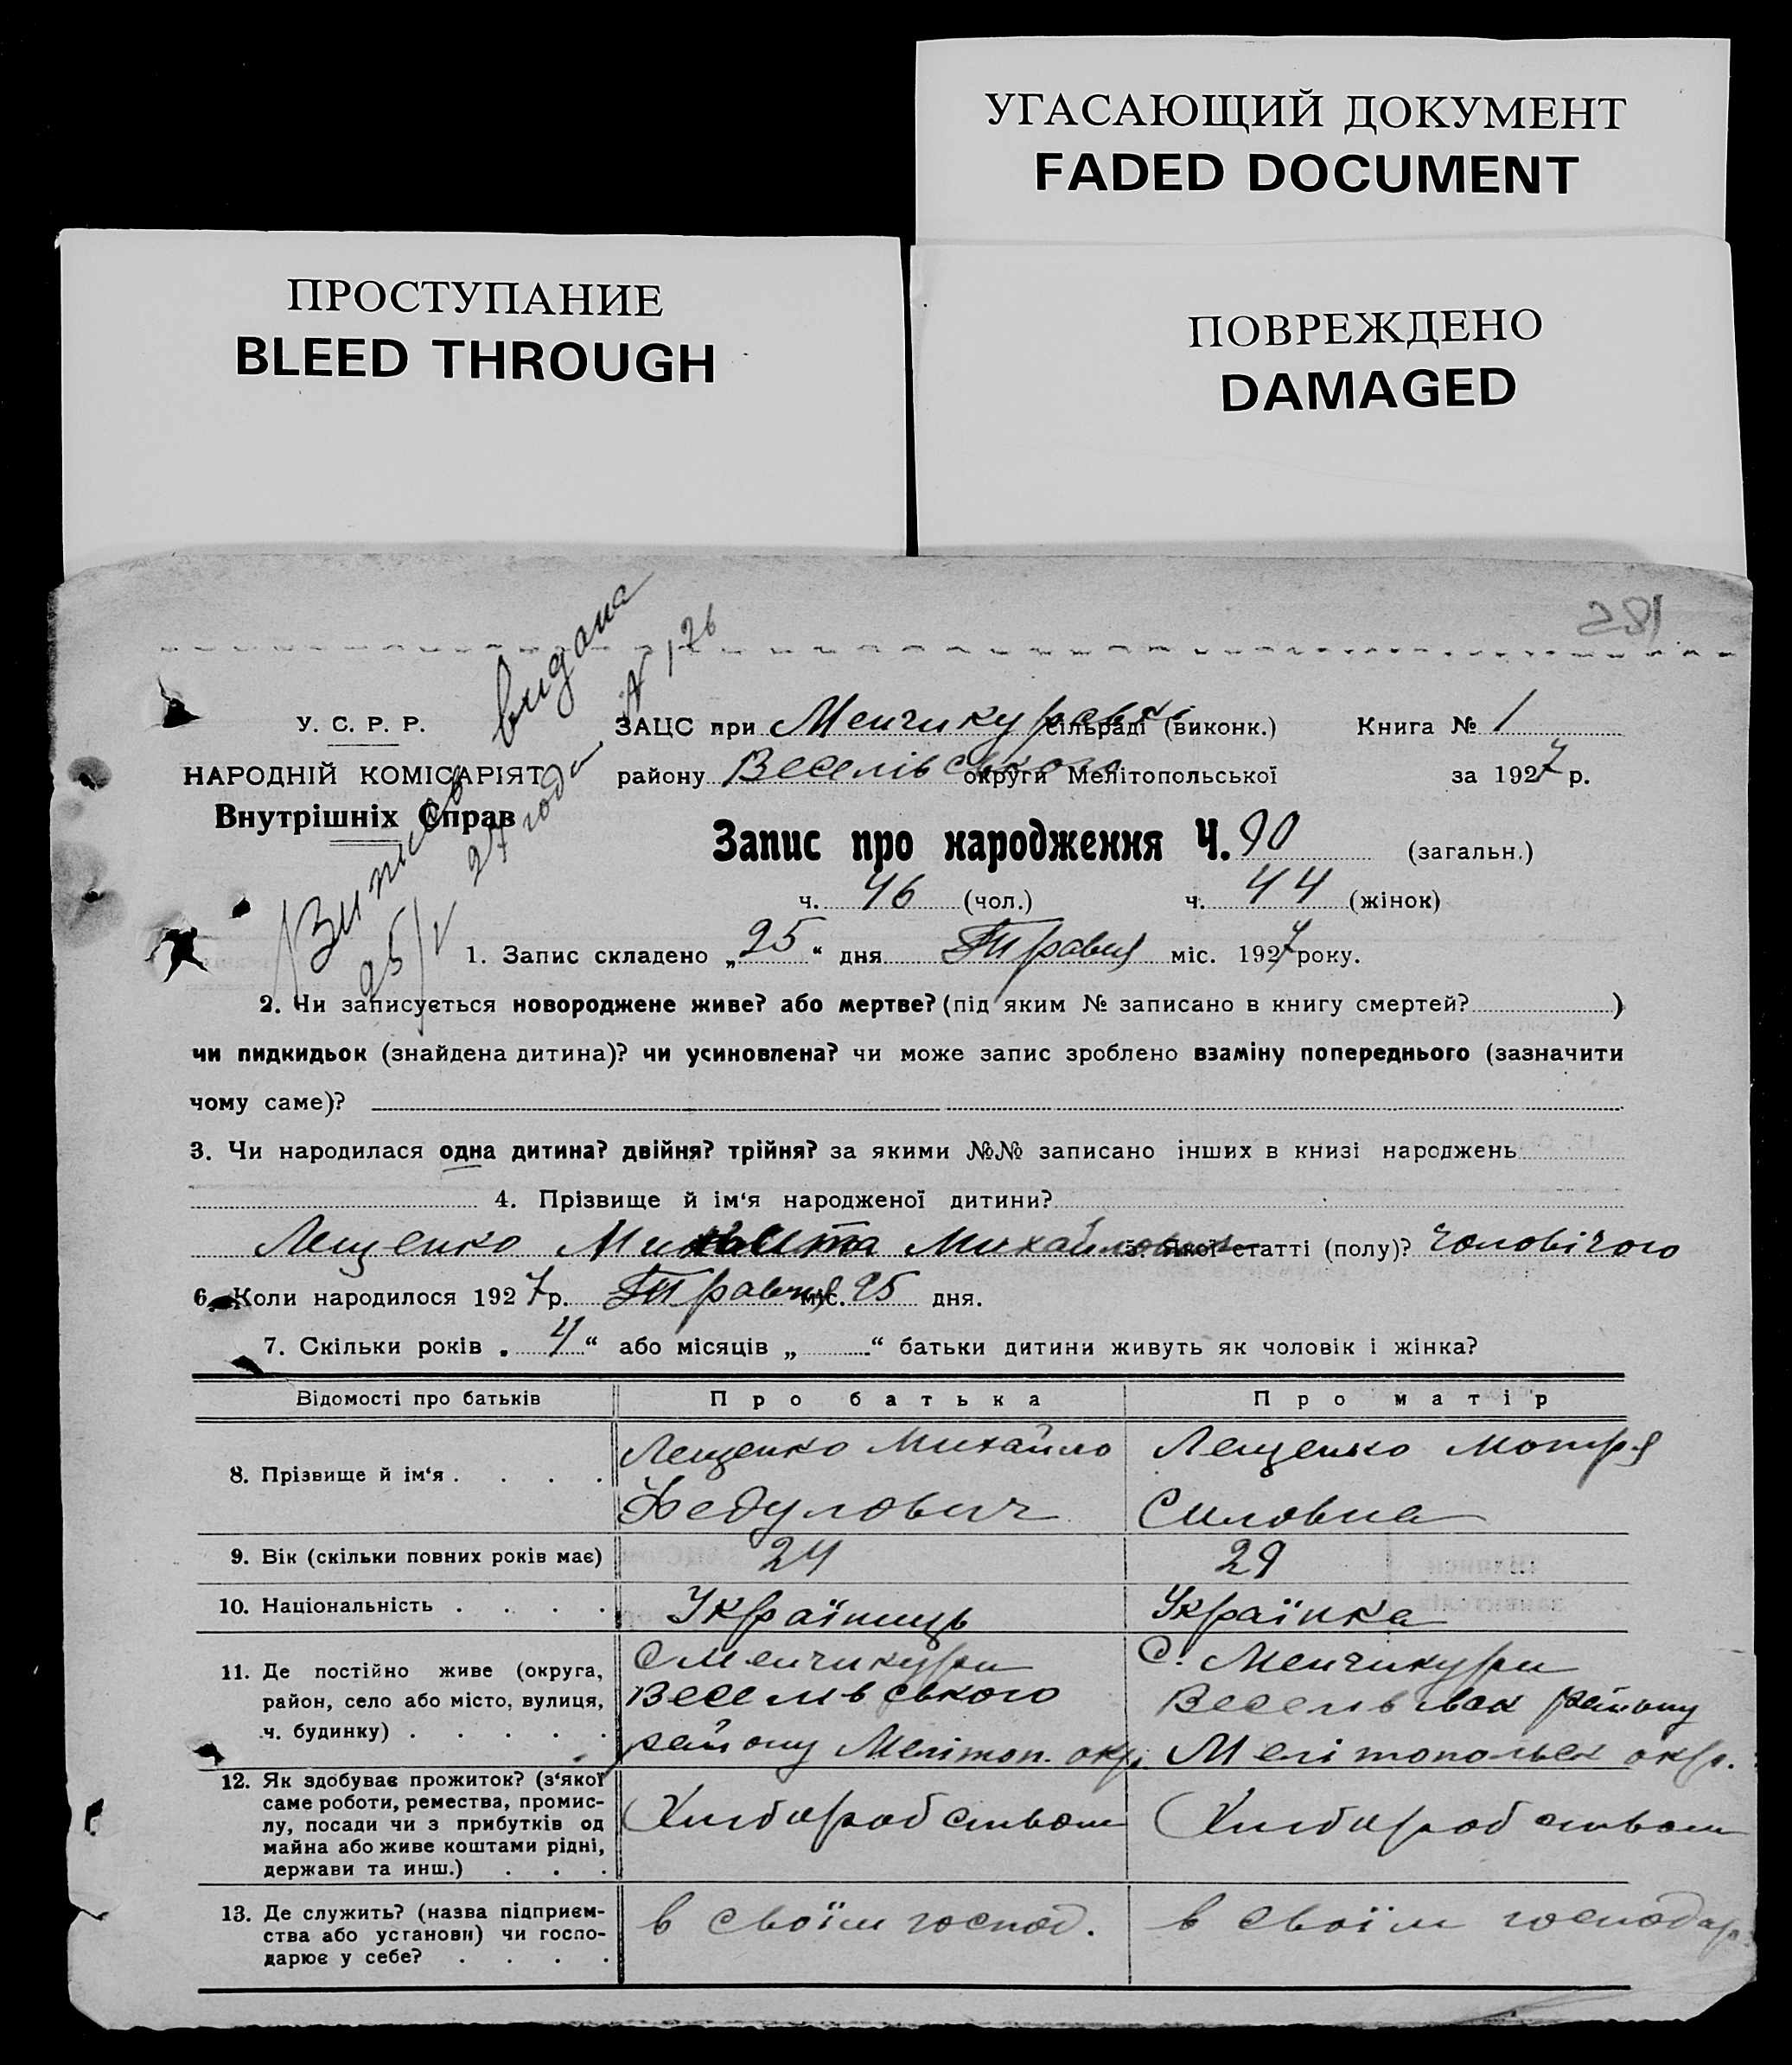 УГАСАЮЩИЙ ДОКУМЕНТ
FADED DOCUMENT
ПРОСТУПАНИЕ
BLEED THROUGH
ПОВРЕЖДЕНО
DAMAGED
281
Випись видана
25/V 27 года № 126
У. С. Р. Р.
НАРОДНІЙ КОМІСАРІЯТ
Внутрішніх Справ
ЗАЦС при Менчикуравкі сільраді (виконк.) Книга № 1
району Веселівського округи Мелітопольської за 1927 р.
Запис про народження Ч. 90 (загальн.)
ч. 46 (чол.) ч. 44 (жінок)
1. Запис складено „25“ дня Травня міс. 1927 року.
2. Чи записується новороджене живе? або мертве? (під яким № записано в книгу смертей? )
чи пидкидьок (знайдена дитина)? чи усиновлена? чи може запис зроблено взаміну попереднього (зазначити
чому саме)?
3. Чи народилася одна дитина? двійня? трійня? за якими №№ записано інших в книзі народжень
4. Прізвище й ім‘я народженої дитини?
Лещенко Михайлович 5. Якої статті (полу)? чоловічого
6. Коли народилося 1927 р. Травня міс. 25 дня.
7. Скільки років „4“ або місяців „ “ батьки дитини живуть як чоловік і жінка?
Відомості про батьків Про батька Про матір
8. Прізвище й ім‘я . . . . Лещенко Михайло Федулович Лещенко Мотря Силовна
9. Вік (скільки повних років має) 24 29
10. Національність . . . . Українець Українка
11. Де постійно живе (округа, С Менчикури С. Менчикури
район, село або місто, вулиця, Веселівського Веселівськ району
ч. будинку) . . . . . району Мелітоп. окр. Мелітопольськ окр.
12. Як здобуває прожиток? (з‘якої
саме роботи, ремества, промис-
лу, посади чи з прибутків од Хліборобством Хліборобством
майна або живе коштами рідні,
держави та инш.) . . .
13. Де служить? (назва підприєм- в своїм господ. в своїм господар.
ства або установи) чи госпо-
дарює у себе? . . . .